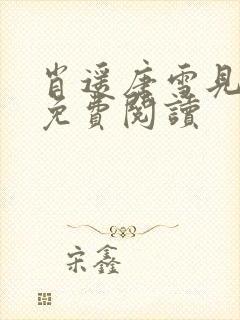 肖遥唐雪見
免費閱讀
宋鑫